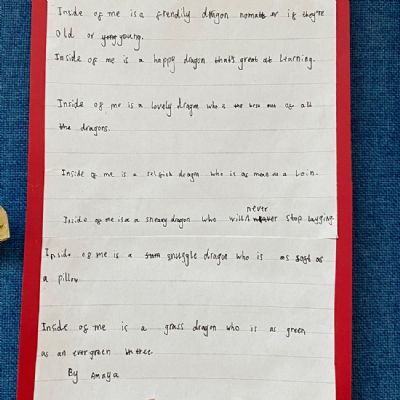 Inside of me is a frendily dragon nomatter if they're
old or young.
Inside of me is a happy dragon that's great at learning.
Inside of me is a lovely dragon who is the best out of all
the dragons.
Inside of me is a selfish dragon who is as mean as a
Inside of me is a sneaky dragon who will never stop
Inside of me is a snuggle dragon who is as soft as
a pillow
Inside of me is a grass dragon who is as green
as an evergreen tree
By Amaya